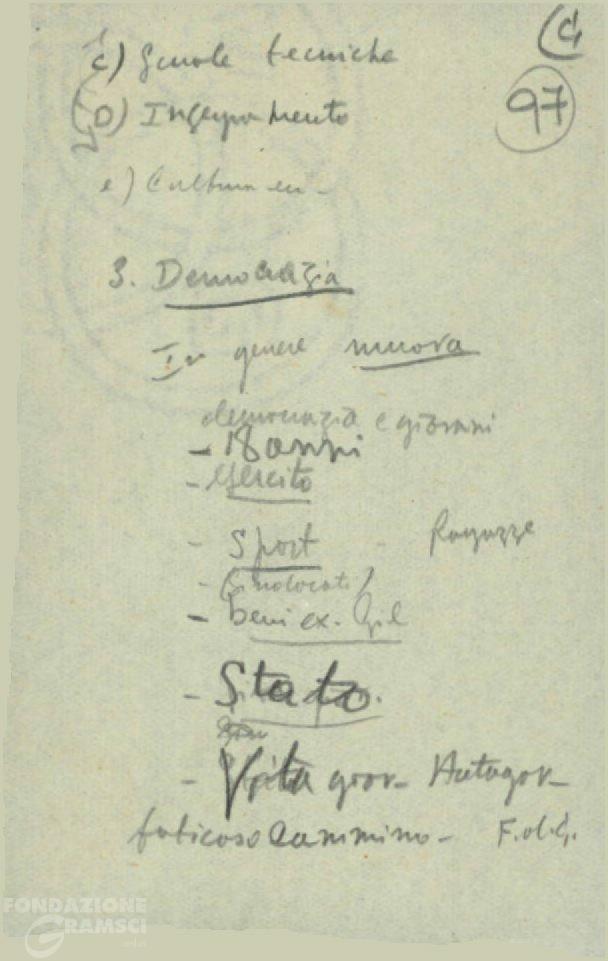 C)
97
c) Scuole tecniche
D) Insegnamento
e) Cultura
3. Democrazia
In genere nuova
democrazia e giovani
- 18 anni
- esercito
- Sport - Ragazze
- (Sindacati)
- Beni ex. Gil
- Stato
- Vita giov- Autogov-
faticoso cammino- F.d.G.
FONDAZIONE
GRAMSCI
onlus